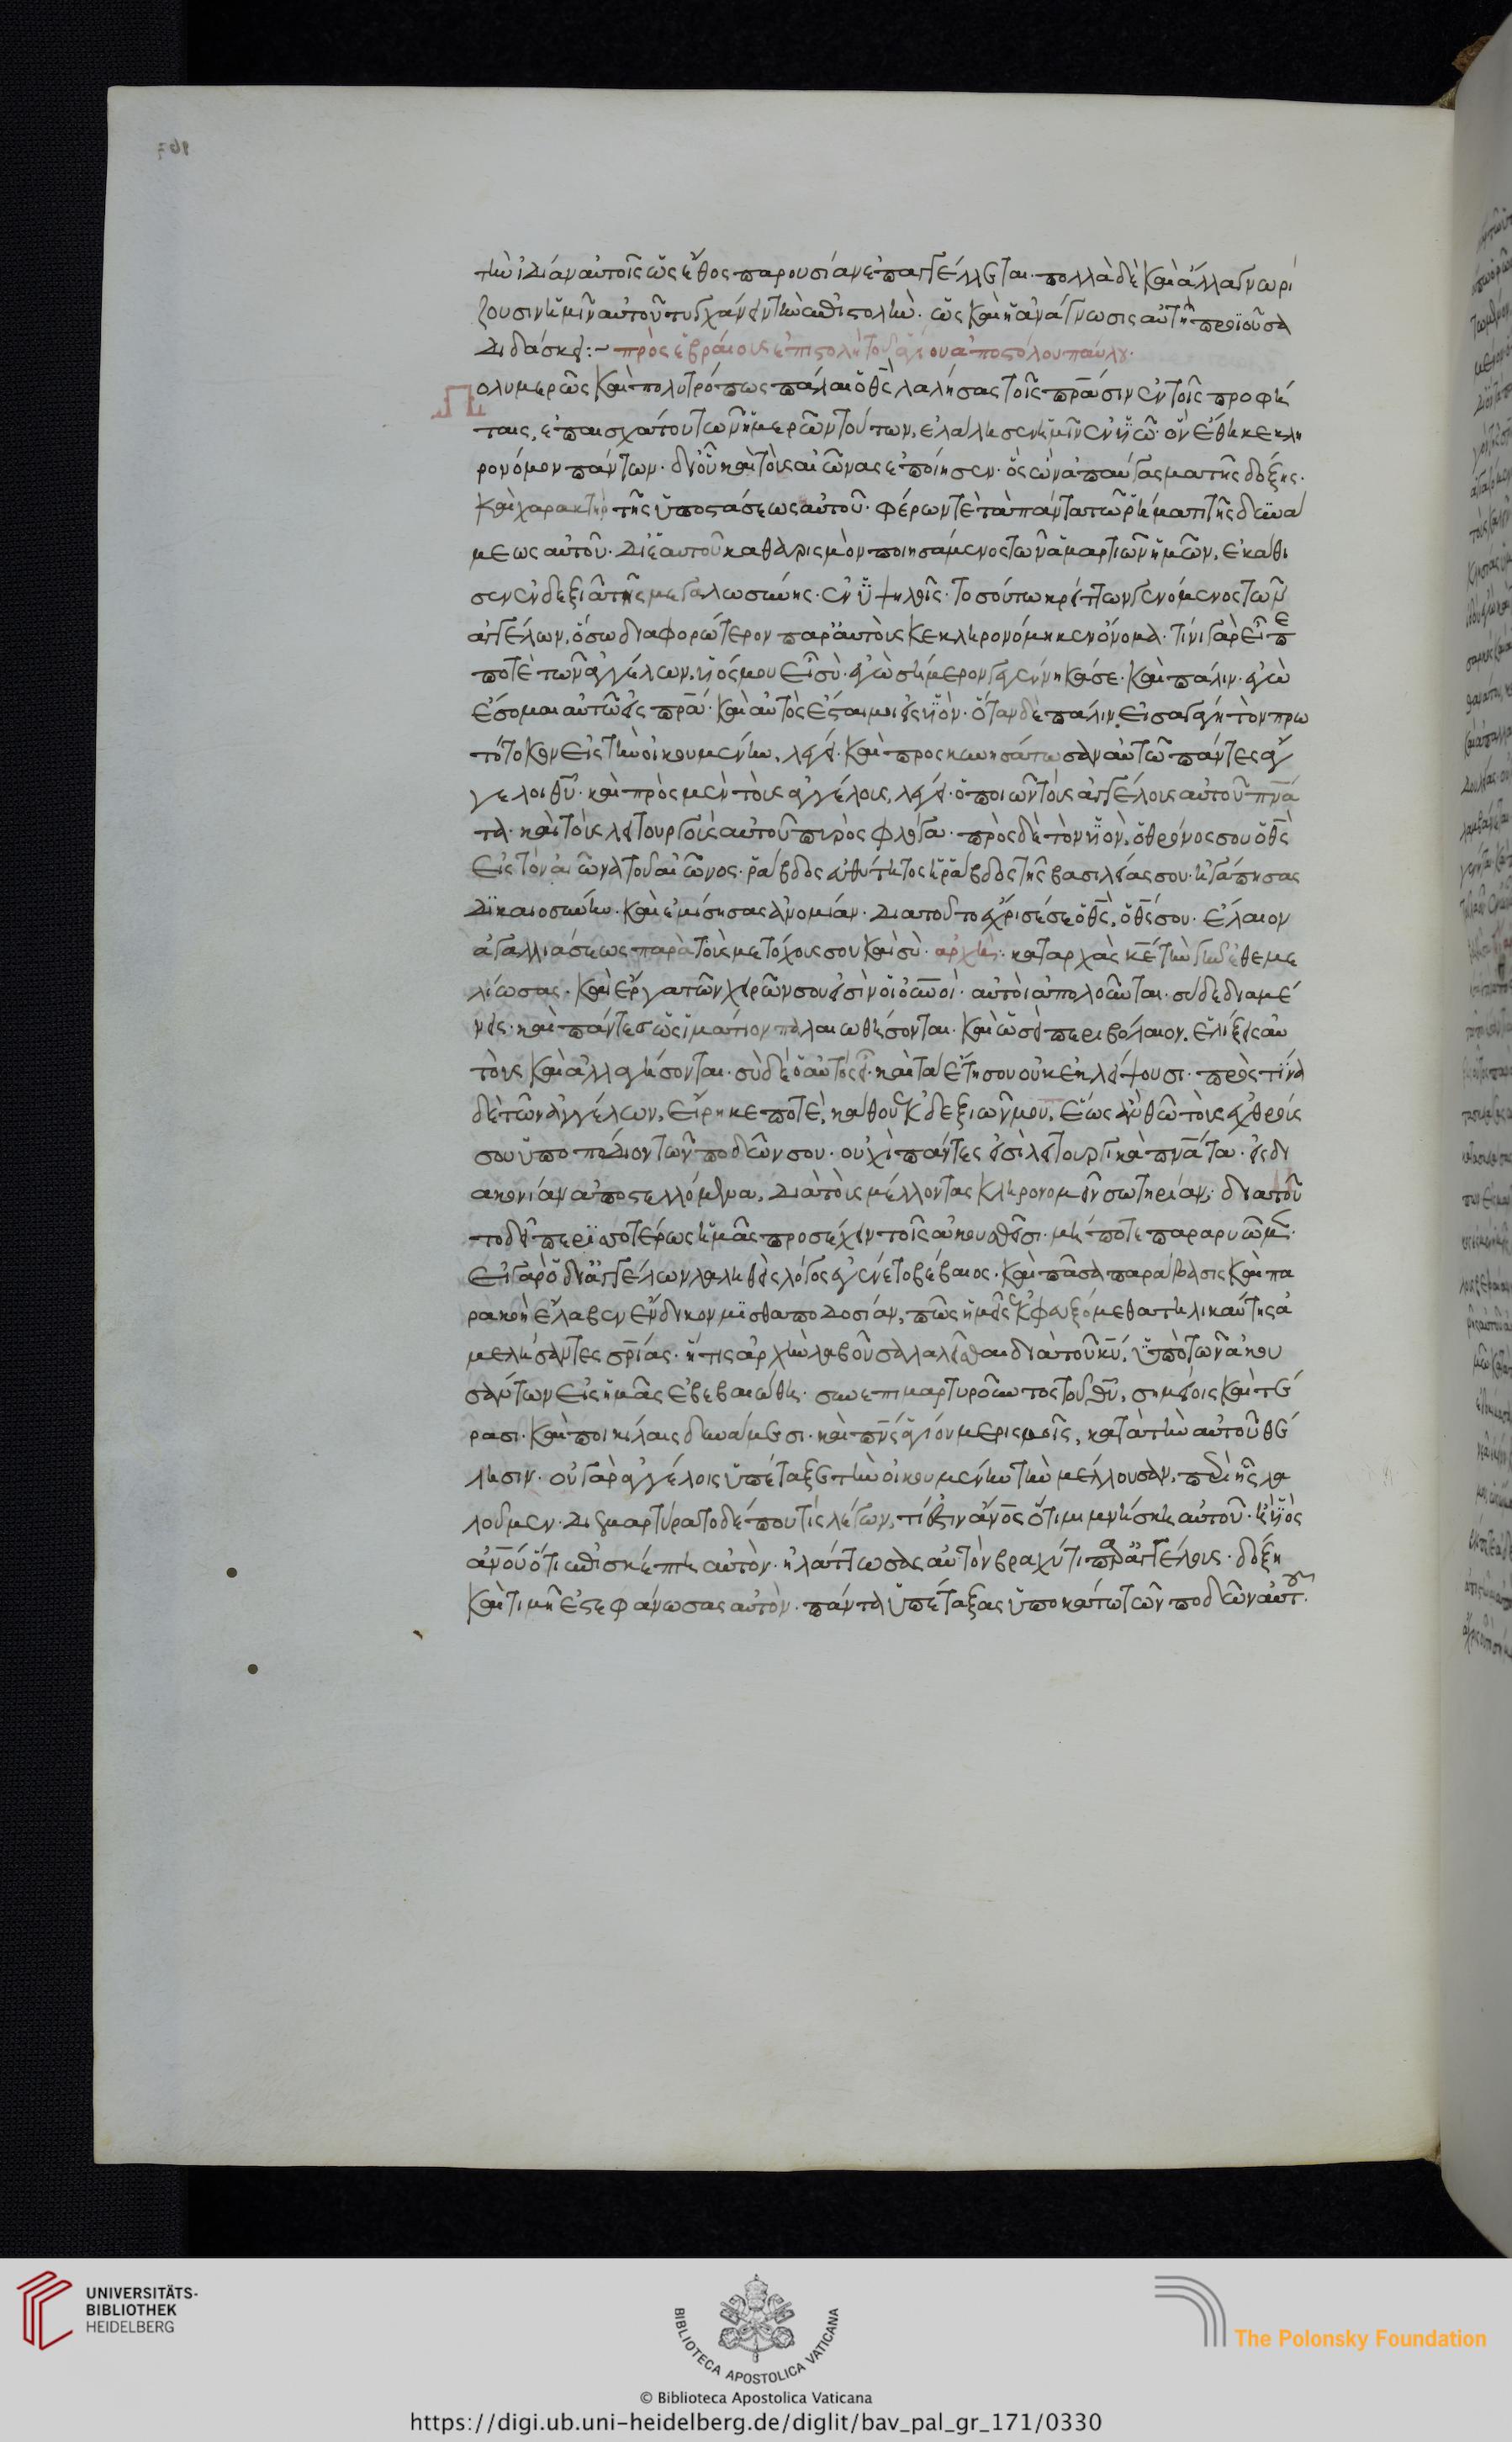 τὴν ἰδίαν αὐτοῖς ὡς ἔθος παρουσίαν ἐπαγγέλλεται· πολλὰ δὲ καὶ ἄλλα γνωρί
ζουσιν ἡμῖν αὐτοῦ τυγχάνειν τὴν ἐπιστολήν· ὡς καὶ ἡ ἀνάγνωσις αὐτὴ προϊοῦσα
διδάσκει:~ πρὸς ἑβραίους ἐπιστολὴ τοῦ ἁγίου ἀποστόλου παύλου·
Πολυμερῶς καὶ πολυτρόπως πάλαι ὁ θς λαλήσας τοῖς πρασιν ἐν τοῖς προφή
ταις, ἐπ' ἐσχάτου τῶν ἡμερῶν τούτων, ἐλάλησεν ἡμῖν ἐν υἱῶ· ὃν ἔθηκε κλη
ρονόμον πάντων· δι' οὗ καὶ τοὺς αἰῶνας ἐποίησεν· ὃς ὢν ἀπαύγασμα τῆς δόξης·
καὶ χαρακτὴρ τῆς ὑποστάσεως αὐτοῦ· φέρων τὲ τὰ πάντα τῶ ῥήματι τῆς δυνά
μεως αὐτοῦ· δι' ἑαυτοῦ καθαρισμὸν ποιησάμενος τῶν ἁμαρτιῶν ἡμῶν, ἐκάθι
σεν ἐν δεξιᾶ τῆς μεγαλωσύνης· ἐν ὑψηλοῖς· τοσούτω κρείττων γενόμενος τῶν
ἀγγέλων, ὅσω διαφορώτερον παρ' αὐτοὺς κεκληρονόμηκεν ὄνομα· τίνι γὰρ εἶπέ
ποτὲ τῶν ἀγγέλων, υἱός μου εἶ σὺ· ἐγὼ σήμερον γεγέννηκά σε· καὶ πάλιν· ἐγὼ
ἔσομαι αὐτῶ εἰς πρα· καὶ αὐτὸς ἔσται μοι εἰς υἱὸν· ὅταν δὲ πάλιν εἰσαγάγη τὸν πρω
τότοκον εἰς τὴν οἰκουμένην, λέγει· καὶ προσκυνησάτωσαν αὐτῶ πάντες ἄγ
γελοι θυ· καὶ πρὸς μὲν τοὺς ἀγγέλους, λέγει· ὁ ποιῶν τοὺς ἀγγέλους αὐτοῦ πνα
τα· καὶ τοὺς λειτουργοὺς αὐτοῦ πυρὸς φλόγα· πρὸς δὲ τὸν υἱὸν, ὁ θρόνος σου ὁ θς
εἰς τὸν αἰῶνα τοῦ αἰῶνος· ῥάβδος εὐθύτητος ἡ ῥάβδος τῆς βασιλείας σου· ἠγάπησας
δικαιοσύνην· καὶ ἐμίσησας ἀνομίαν· διατοῦτο ἔχρισέ σε ὁ θς, ὁ θς σου· ἔλαιον
ἀγαλλιάσεως παρὰ τοὺς μετόχους σου καὶ σὺ· ἀρχῆς· καταρχὰς κε τὴν γῆν ἐθεμε
λίωσας· καὶ ἔργα τῶν χειρῶν σου εἰσὶν οἱ οὐνοί· αὐτοὶ ἀπολοῦνται· σὺ δὲ διαμέ
νεις· καὶ πάντες ὡς ἱμάτιον παλαιωθήσονται· καὶ ὡσεὶ περιβόλαιον, ἑλίξεις αὐ
τοὺς καὶ ἀλλαγήσονται· σὺ δὲ ὁ αὐτὸς εἶ· καὶ τὰ ἔτη σου οὐκ ἐκλείψουσι· πρὸς τίνα
δὲ τῶν ἀγγέλων, εἴρηκε ποτὲ, κάθου ἐκ δεξιῶν μου, ἕως ἂν θῶ τοὺς ἐχθρούς
σου ὑποπόδιον τῶν ποδῶν σου· οὐχὶ πάντες εἰσὶ λειτουργικὰ πνατα· εἰς δι
ακονίαν ἀποστελλόμενα, διὰ τοὺς μέλλοντας κληρονομεῖν σωτηρίαν· διατοῦ
το δεῖ περισσοτέρως ἡμᾶς προσέχειν τοῖς ἀκουσθεῖσι· μή ποτε παραρυῶμεν·
εἰ γὰρ ὁ δι' ἀγγέλων λαληθεὶς λόγος ἐγένετο βέβαιος· καὶ πᾶσα παράβασις καὶ πα
ρακοὴ ἔλαβεν ἔνδικον μισθαποδοσίαν, πῶς ἡμεῖς ἐκφευξόμεθα τηλικαύτης ἀ
μελήσαντες σριας· ἥτις ἀρχὴν λαβοῦσα λαλεῖσθαι διὰ τοῦ κυ, ὑπὸ τῶν ἀκου
σάντων εἰς ἡμᾶς ἐβεβαιώθη· συνεπιμαρτυροῦντος τοῦ θυ, σημείοις καὶ τέ
ρασι· καὶ ποικίλαις δυνάμεσι· καὶ πνς ἁγίου μερισμοῖς, κατὰ τὴν αὐτοῦ θέ
λησιν· οὐ γὰρ ἀγγέλοις ὑπέταξε τὴν οἰκουμένην τὴν μέλλουσαν, περὶ ἧς λα
λοῦμεν· διεμαρτύρατο δέ που τίς λέγων, τί ἐστιν ανος ὅτι μιμνήσκη αὐτοῦ· ἢ υἱὸς
ανου ὅτι ἐπισκέπτη αὐτὸν· ἠλάττωσας αὐτὸν βραχύ τι παρ' ἀγγέλους· δόξη
καὶ τιμῆ ἐστεφάνωσας αὐτὸν· πάντα ὑπέταξας ὑποκάτω τῶν ποδῶν αὐτοῦ·
UNIVERSITÄTS-
BIBLIOTHEK
HEIDELBERG
BIBLIOTECA APOSTOLICA VATICANA
The Polonsky Foundation
© Biblioteca Apostolica Vaticana
https://digi.ub.uni-heidelberg.de/diglit/bav_pal_gr_171/0330